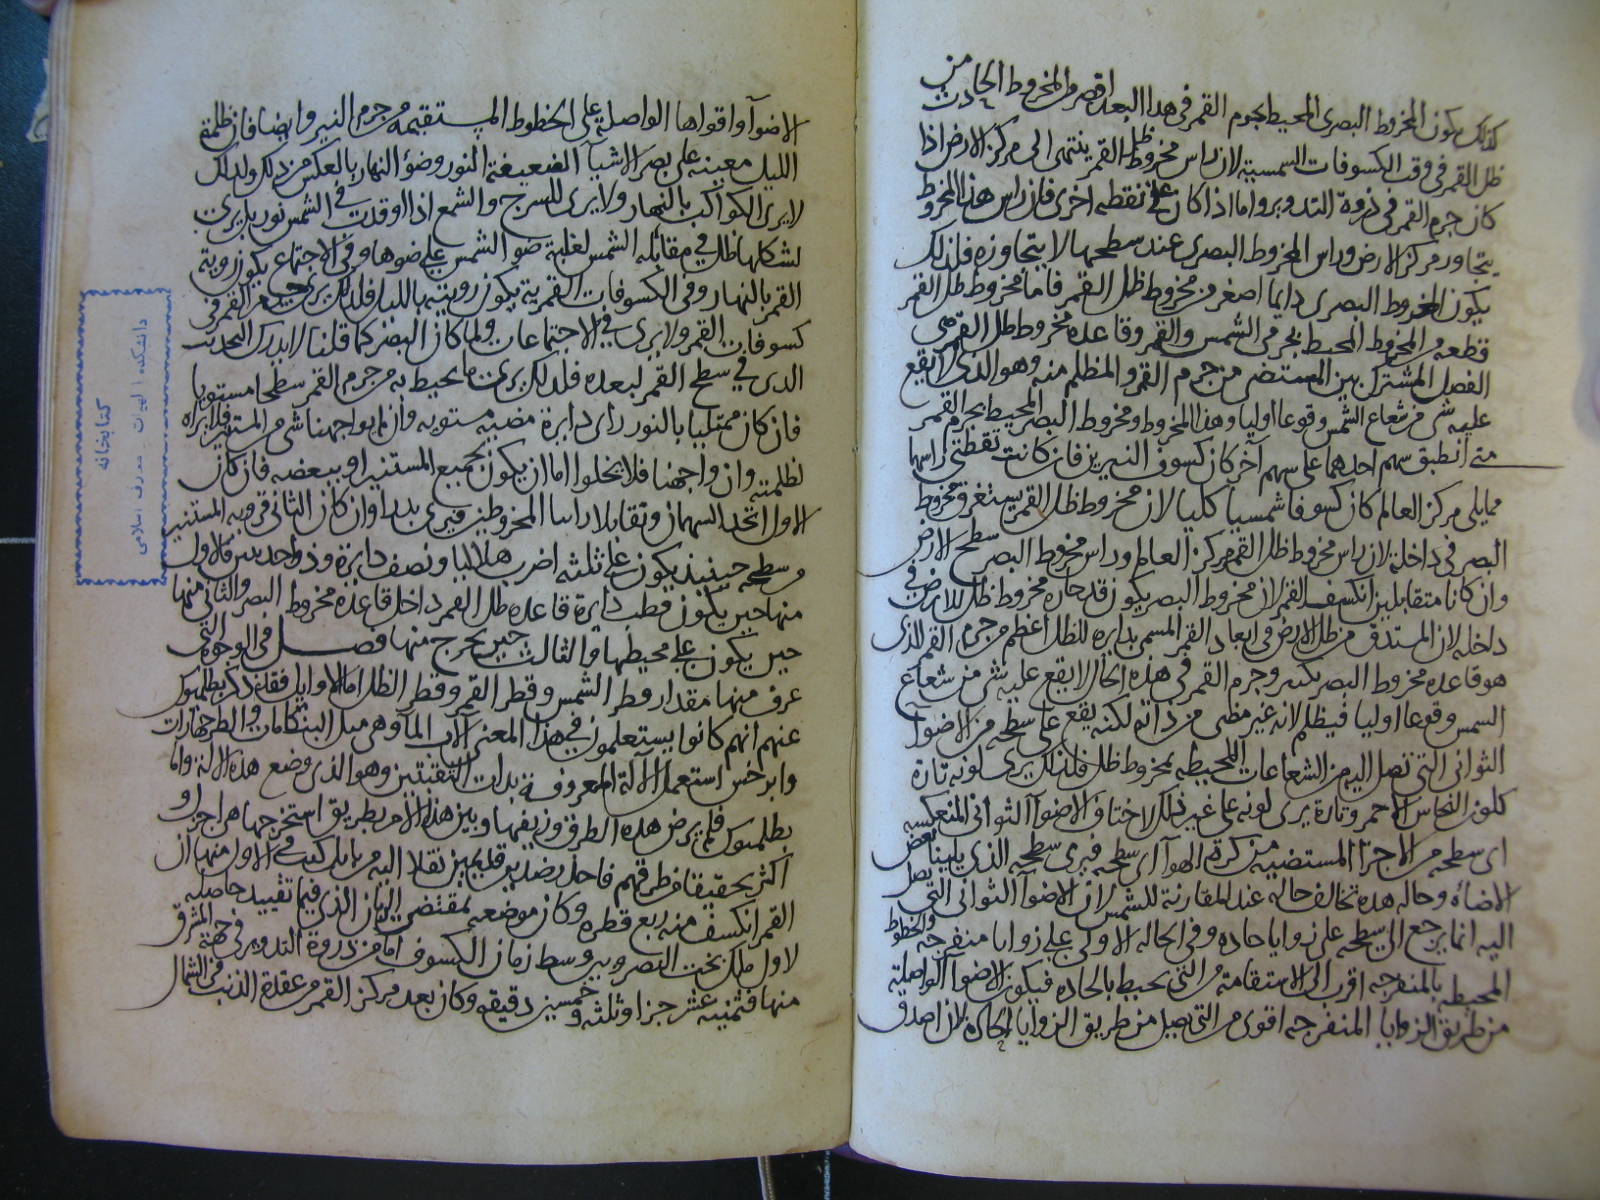 كذلك يكون المخروط البصرى المحيط بجرم القمر فى هذا البعد اقصر من المخروط الحادث من
ظل القمر فى وقت الكسوفات الشمسية لان راس مخروط ظل القمر ينتهى الى مركز الارض اذا
كان جرم القمر فى ذروة التدوير واما اذا كان على نقطه اخرى فان راس هذا المخروط
يتجاوز مركز الارض وراس المخروط البصرى عند سطحها لا يتجاوزه فلذلك
يكون المخروط البصرى دايما اصغر من مخروط ظل القمر فاما مخروط ظل القمر
قطعه من المخروط المحيط بجرمى الشمس والقمر وقاعده مخروط ظل القمر هى
الفصل المشترك بين المستضى من جرم القمر والمظلم منه وهو الذى لا يقع
عليه شى من شعاع الشمس وقوعا اوليا وهذا المخروط ومخروط البصر المحيط بجرم القمر
متى انطبق سهم احدهما على سهم آخر كان كسوف النيرين فان كانت نقطتى راسهما
ممايلى مركز العالم كان كسوفا شمسيا كليا لان مخروط ظل القمر يستغرق مخروط
البصر فى داخله لان راس مخروط ظل القمر مركز العالم وراس مخروط البصر سطح الارض
وان كانا متقابلين انكسف القمر لان مخروط البصر يكون قد حازه مخروط ظل الارض فى
داخله لان المستدق من ظل الارض فى ابعاد القمر المسمى بدايره للظل اعظم من جرم القمر الذى
هو قاعده مخروط البصر بكثير وجرم القمر فى هذه الحال لا يقع عليه شى من شعاع
الشمس وقوعا اوليا فيظلم لانه غير مضى من ذاته لكنه يقع على سطحه من الاضوآ
الثوانى التى تصل اليه من الشعاعات المحيطه بمخروط ظل فلذلك يرى لونه تارة
كلون النحاس الاحمر وتارة يرى لونه على غير ذلك لاختلاف الاضوآ الثوانى المنعكسه
اى سطحه من الاجزآ المستضيه من كرة الهوآ اى سطحه فيرى سطحه الذى يلينا بعض
الاضاه وحاله هذه تخالف حاله عند المقارنة للشمس لان الاضوآ الثوانى التى تصل
اليه انما يرجع الى سطحه على زوايا حاده وفى الحاله الاولى على زوايا منفرجه والخطوط
المحيطه بالمنفرجه اقرب الى الاستقامة من التى يحيط بالحاده فيكون الاضوآ الواصلية
من طريق الزوايا المنفرجه اقوى من التى يصل من طريق الزوايا الحاده لان اصدق
الاضوآ واقواها الواصلة على الخطوط المستقيمه من جرم النير وايضا فان ظلمة
الليل معينه على بصر الاشيآ الضعيفة النور وضؤ النهار بالعكس من ذلك ولذلك
لا يرى الكواكب بالنهار ولا يرى للسرج والشمع اذا اوقدت فى الشمس نور بل يرى
لشكلها ظل فى مقابله الشمس لغلبة ضو الشمس على ضوها وفى الاجتماع يكون رويته
القمر بالنهار وفى الكسوفات القمرية يكون رويته بالليل فلذلك يرى جرم القمر فى
كسوفات القمر ولا يرى فى الاجتماعات ولما كان البصر كما قلنا لا يدرك التحديب
الذى فى سطح القمر لبعده فلذلك يرى ما يحيط به من جرم القمر سطحا مستويا
فان كان ممتليا بالنور راى دايرة مضيه مستويه وان لم يواجهنا شى من المستنير فلا يراه
لظلمته وان واجهنا فلا يخلوا اما ان يكون بجميع المستنير او ببعضه فان كان
الاول اتحد السهمان وتقابلا راسا المخروطين فيرى بدرا وان كان الثانى قرويه المستنير
من سطحه حينيذ يكون على ثلثه اضرب هلاليا ونصف دايرة وذو حدبتين فالاول
منها حين يكون قطب دايرة قاعدة ظل القمر داخل قاعدة مخروط البصر والثانى منها
حين يكون على محيطها والثالث حين يخرج منها فصل فى الوجوه التى
عرف منها مقدار قطر الشمس وقطر القمر وقطر الظل اما الاوايل فقد ذكر بطلميوس
عنهم انهم كانوا يستعلمون فى هذا المعنى آلات المآ وهى مثل البنكامات والطرجهارات
وابرخس استعمل الآلة المعروفة بذات الثقبتين وهو الذى وضع هذه الالة واما
بطلميوس فلم يرض هذه الطرق وزيفها وبين هذا الامر بطريق استخرجها هى اجزا و
اكثر تحقيقا من طرقهم فاخذ رصدين قديمين نقلا اليه من بابل كسف فى الاول منها من
القمر انكسف منه ربع قطره وكان موضعه بمقتضى الزمان الذى فيما تقييد حاصله
لاول ملك بخت النصر وبين وسط زمان الكسوف اما من ذروة التدوير فى جهة المشرق
منها فثمنيه عشر جزا وثلثه وخمسين دقيقه وكان بعد مركز القمر من عقدة الذنب فى الشمال
كتابخانه
دانشكده الهيات و معارف اسلامى